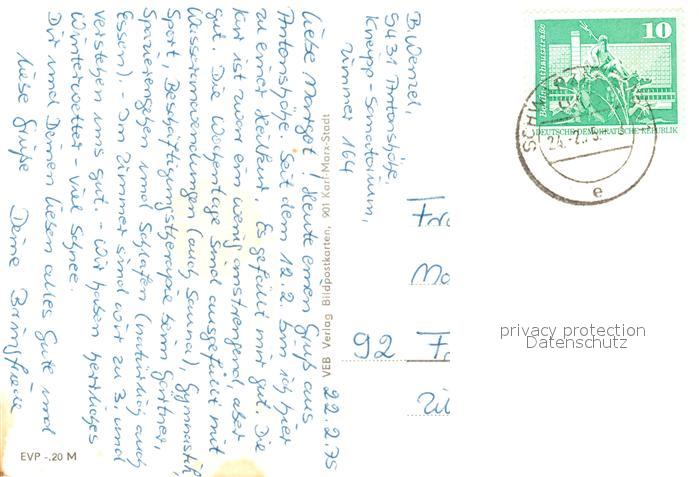 B. Wenzel,
9431 Antonshöhe,
Kneipp-Sanatorium,
Zimmer 164
22.2.75
Liebe Margot! Heute einen Gruß aus
Antonshöhe. Seit dem 12.2. bin ich hier
zu einer Heilkur. Es gefällt mir gut. Die
Kur ist zwar ein wenig anstrengend, aber
gut. Die Wochentage sind ausgefüllt mit
Wasseranwendungen (auch Sauna), Gymnastik,
Sport, Beschäftigungstherapie beim Gärtner,
Spazierengehen und Schlafen (natürlich auch
Essen). - Im Zimmer sind wir zu 3. und
verstehen uns gut. - Wir haben herrliches
Winterwetter - viel Schnee.
Dir und Deinen Lieben alles Gute und
liebe Grüße Deine Brünfriede
VEB Verlag Bildpostkarten, 901 Karl-Marx-Stadt
EVP -.20 M
10
Berlin, Rathausstraße
DEUTSCHE DEMOKRATISCHE REPUBLIK
24.-2.
e
Fr
Mo
92 F
privacy protection
Datenschutz